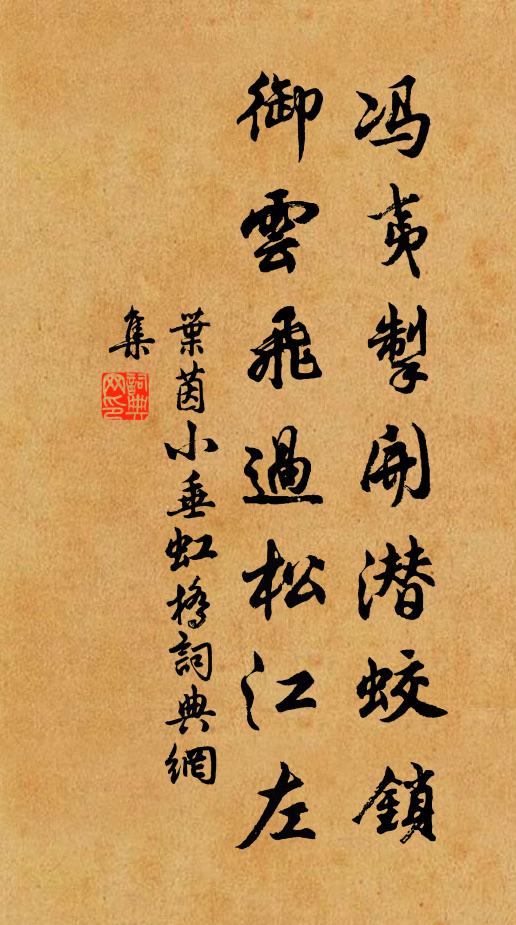 冯夷掣开潜蛟鎖
御雲飛過松江左
葉茵小垂虹橋詞典網
集
詞典
网印